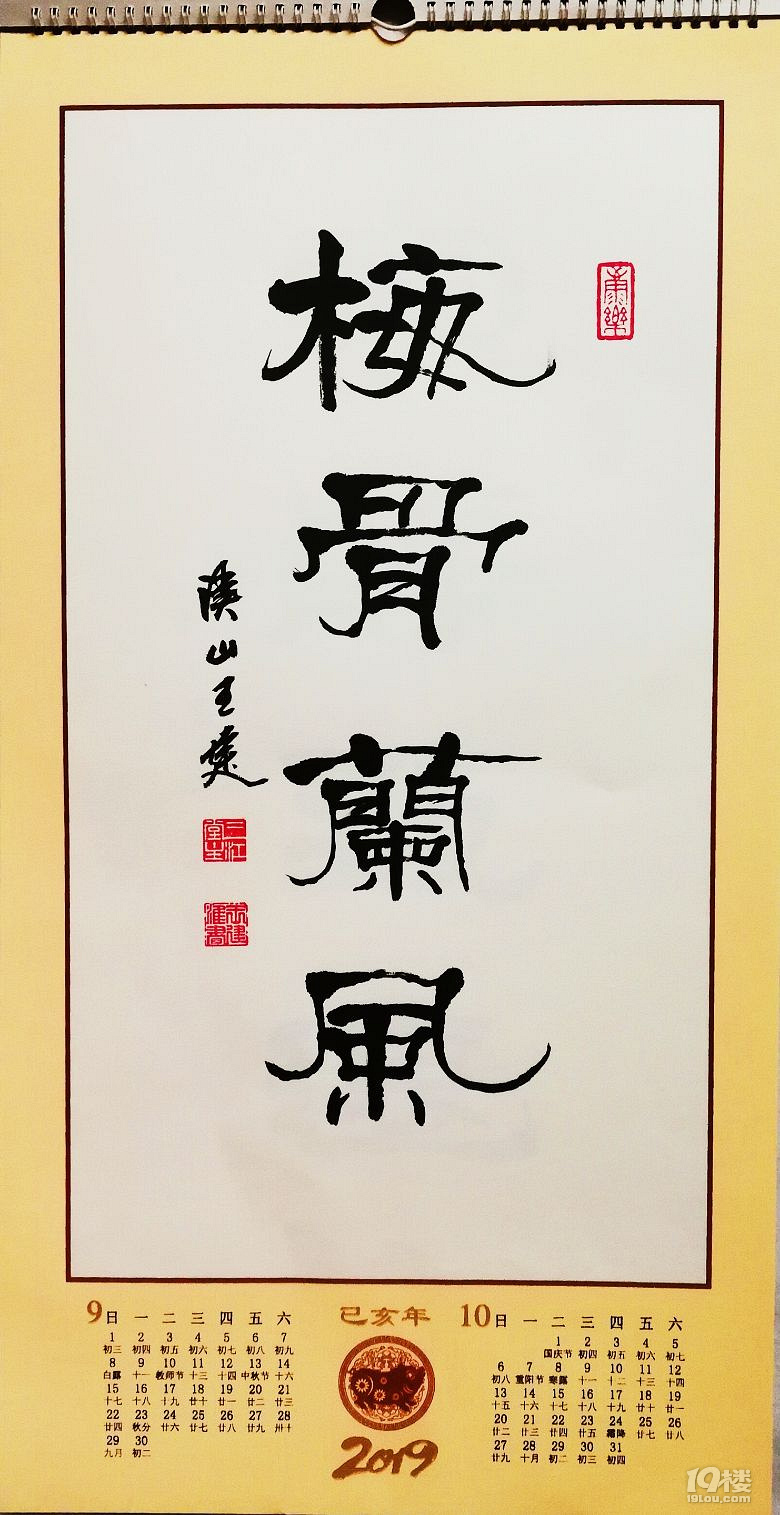 梅
骨
蘭
風
溪山王建
康樂
9 日 一 二 三 四 五 六
1 2 3 4 5 6 7
初三 初四 初五 初六 初七 初八 初九
8 9 10 11 12 13 14
白露 十一 教师节 十三 十四 中秋节 十六
15 16 17 18 19 20 21
十七 十八 十九 二十 廿一 廿二 廿三
22 23 24 25 26 27 28
廿四 秋分 廿六 廿七 廿八 廿九 三十
29 30
九月 初二
己亥年
2019
10 日 一 二 三 四 五 六
1 2 3 4 5
国庆节 初四 初五 初六 初七
6 7 8 9 10 11 12
初八 重阳节 寒露 十一 十二 十三 十四
13 14 15 16 17 18 19
十五 十六 十七 十八 十九 二十 廿一
20 21 22 23 24 25 26
廿二 廿三 廿四 廿五 霜降 廿七 廿八
27 28 29 30 31
廿九 十月 初二 初三 初四
19楼
19lou.com